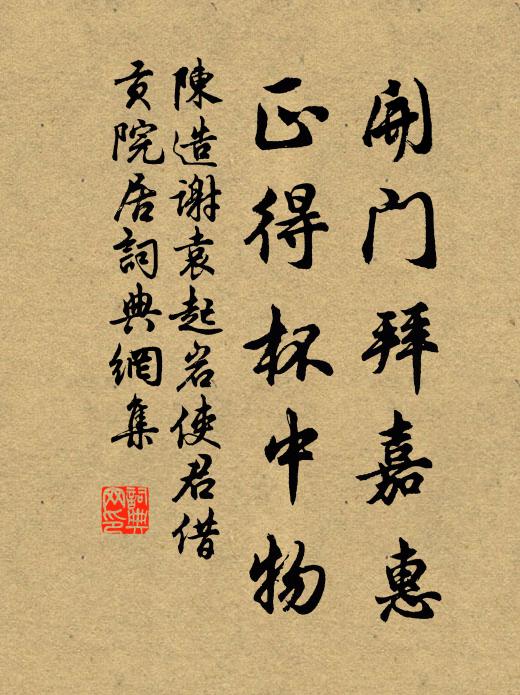 開門拜嘉惠
正得杯中物
陳造謝袁起岩使君借
貢院居詞典網集
詞典
网印